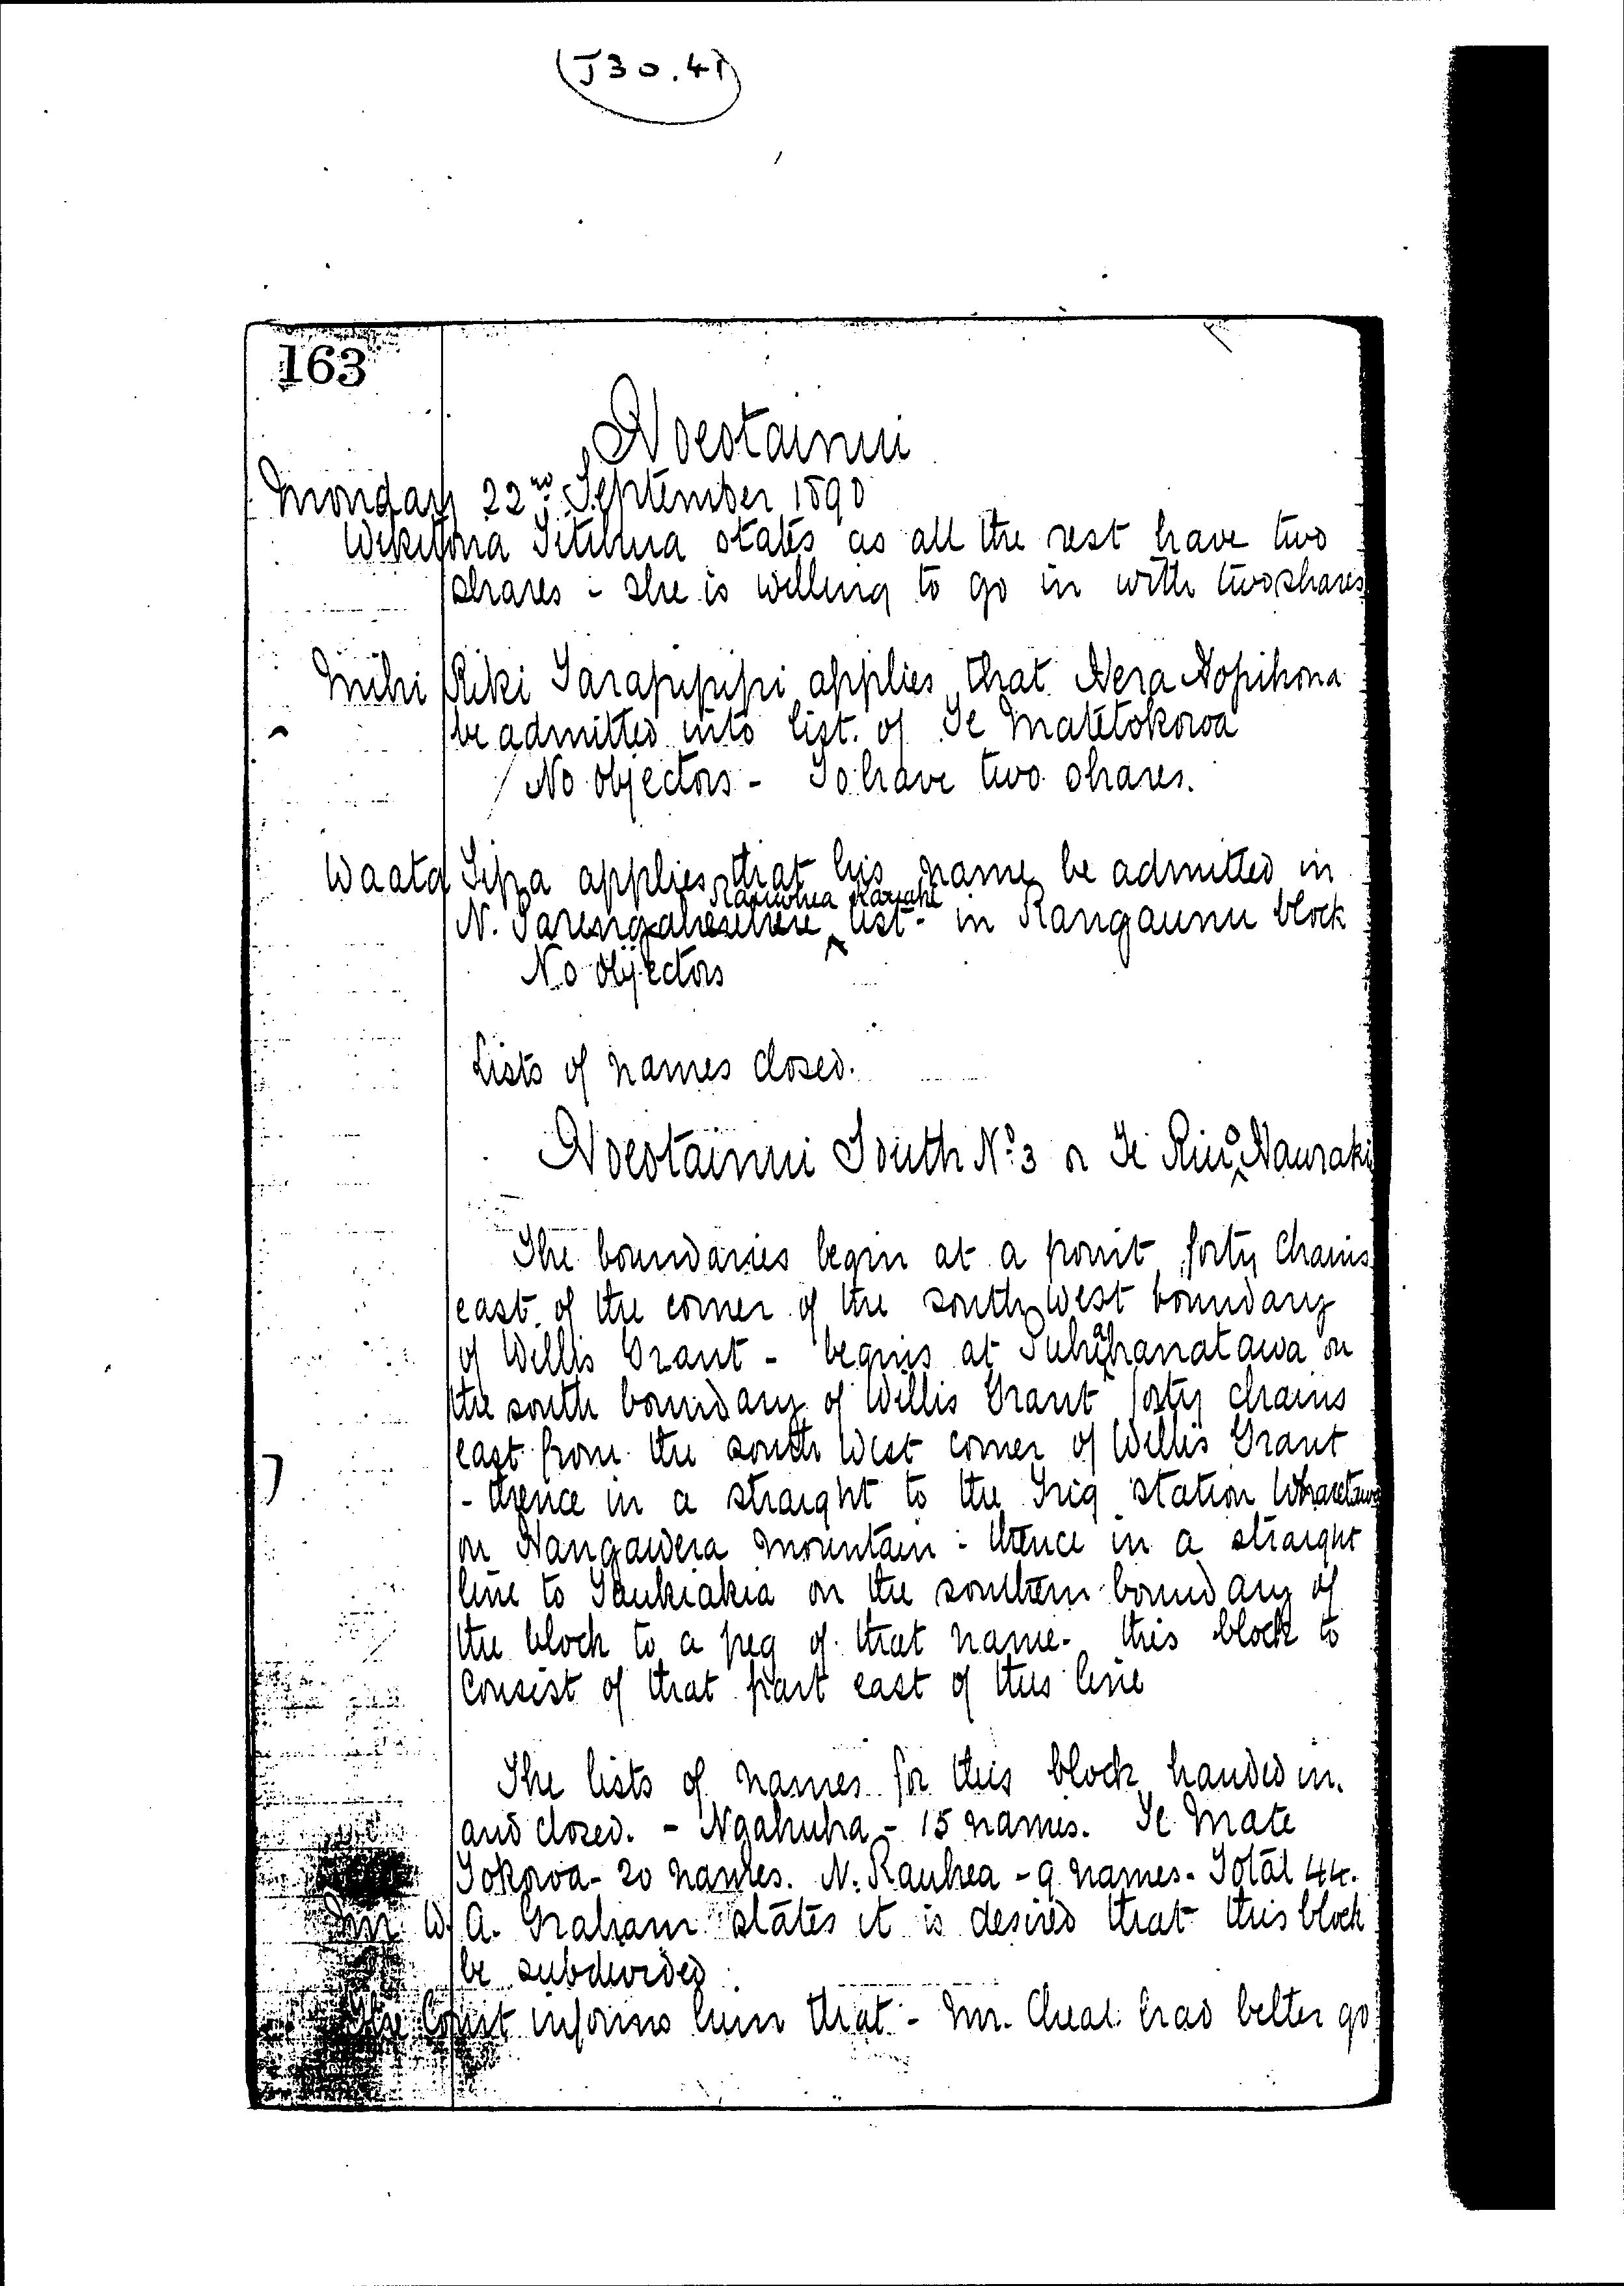 (J30.41)
163
Hoeotainui
Monday 22nd September 1890
Wikitoria Titihuia states as all the rest have two
shares - she is willing to go in with two shares
Mihi Riki Tarapipipi applies that Hera Hopihona
be admitted into list of Te Matetokoroa
No objectors - To have two shares.
Waata Tipa applies that his name be admitted in
Rauwhea Karahi
N. list - in Rangaunu block
No objectors
Lists of names closed.
Hoeotainui South No 3 or Te Riu o Hauraki
The boundaries begin at a point forty chains
east of the corner of the south west boundary
of Willis Grant - begins at on
the south boundary of Willis Grant forty chains
east from the south west corner of Willis Grant
- thence in a straight to the Trig station Wharetawa
on Hangawera mountain - thence in a straight
line to Taukiakia on the southern boundary of
the block to a peg of that name - this block to
consist of that part east of this line
The lists of names for this block handed in
and closed. - Ngahuha - 15 names. Te Mate
Tokoroa - 20 names. N. Rauhea - 9 names - Total 44.
Mr W. A. Graham states it is desired that this block
be subdivided
The Court informs him that - Mr. Cheal had better go